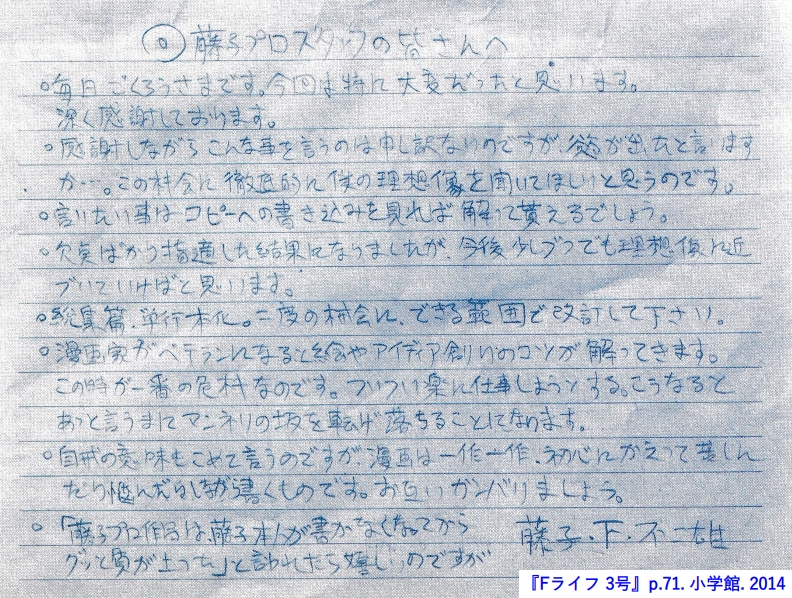 ◎藤子プロスタッフの皆さんへ
○毎日ごくろうさまです。今回は特に大変だったと思います。
深く感謝しております。
○感謝しながらこんな事を言うのは申し訳ないのですが、慾が出たと言はます
か…。この村会に徹底的に僕の理想像を聞いてほしいと思うのです。
○言いたい事はコピーへの書き込みを見れば解って貰えるでしょう。
○欠点ばかり指適した結果になりましたが、今後少しづつでも理想像に近
づいていければと思います。
○総集篇、単行本化。二度の村会に、できる範囲で改訂して下さい。
○漫画家がベテランになると絵やアイディア創りのコツが解ってきます。
この時が一番の危村なのです。ついつい楽に仕事しようとする。こうなると
あっと言うまにマンネリの坂を転げ落ちることになります。
○自戒の意味もこめて言うのですが、漫画は一作一作、初心にかえって苦しん
だり悩んだりしながら書くものです。お互いガンバりましょう。
○「藤子プロ作品は、藤子本人が書かなくなってから
グッと質が上った」と言われたら嬉しいのですが
藤子・F・不二雄
『Fライフ 3号』p.71. 小学館. 2014